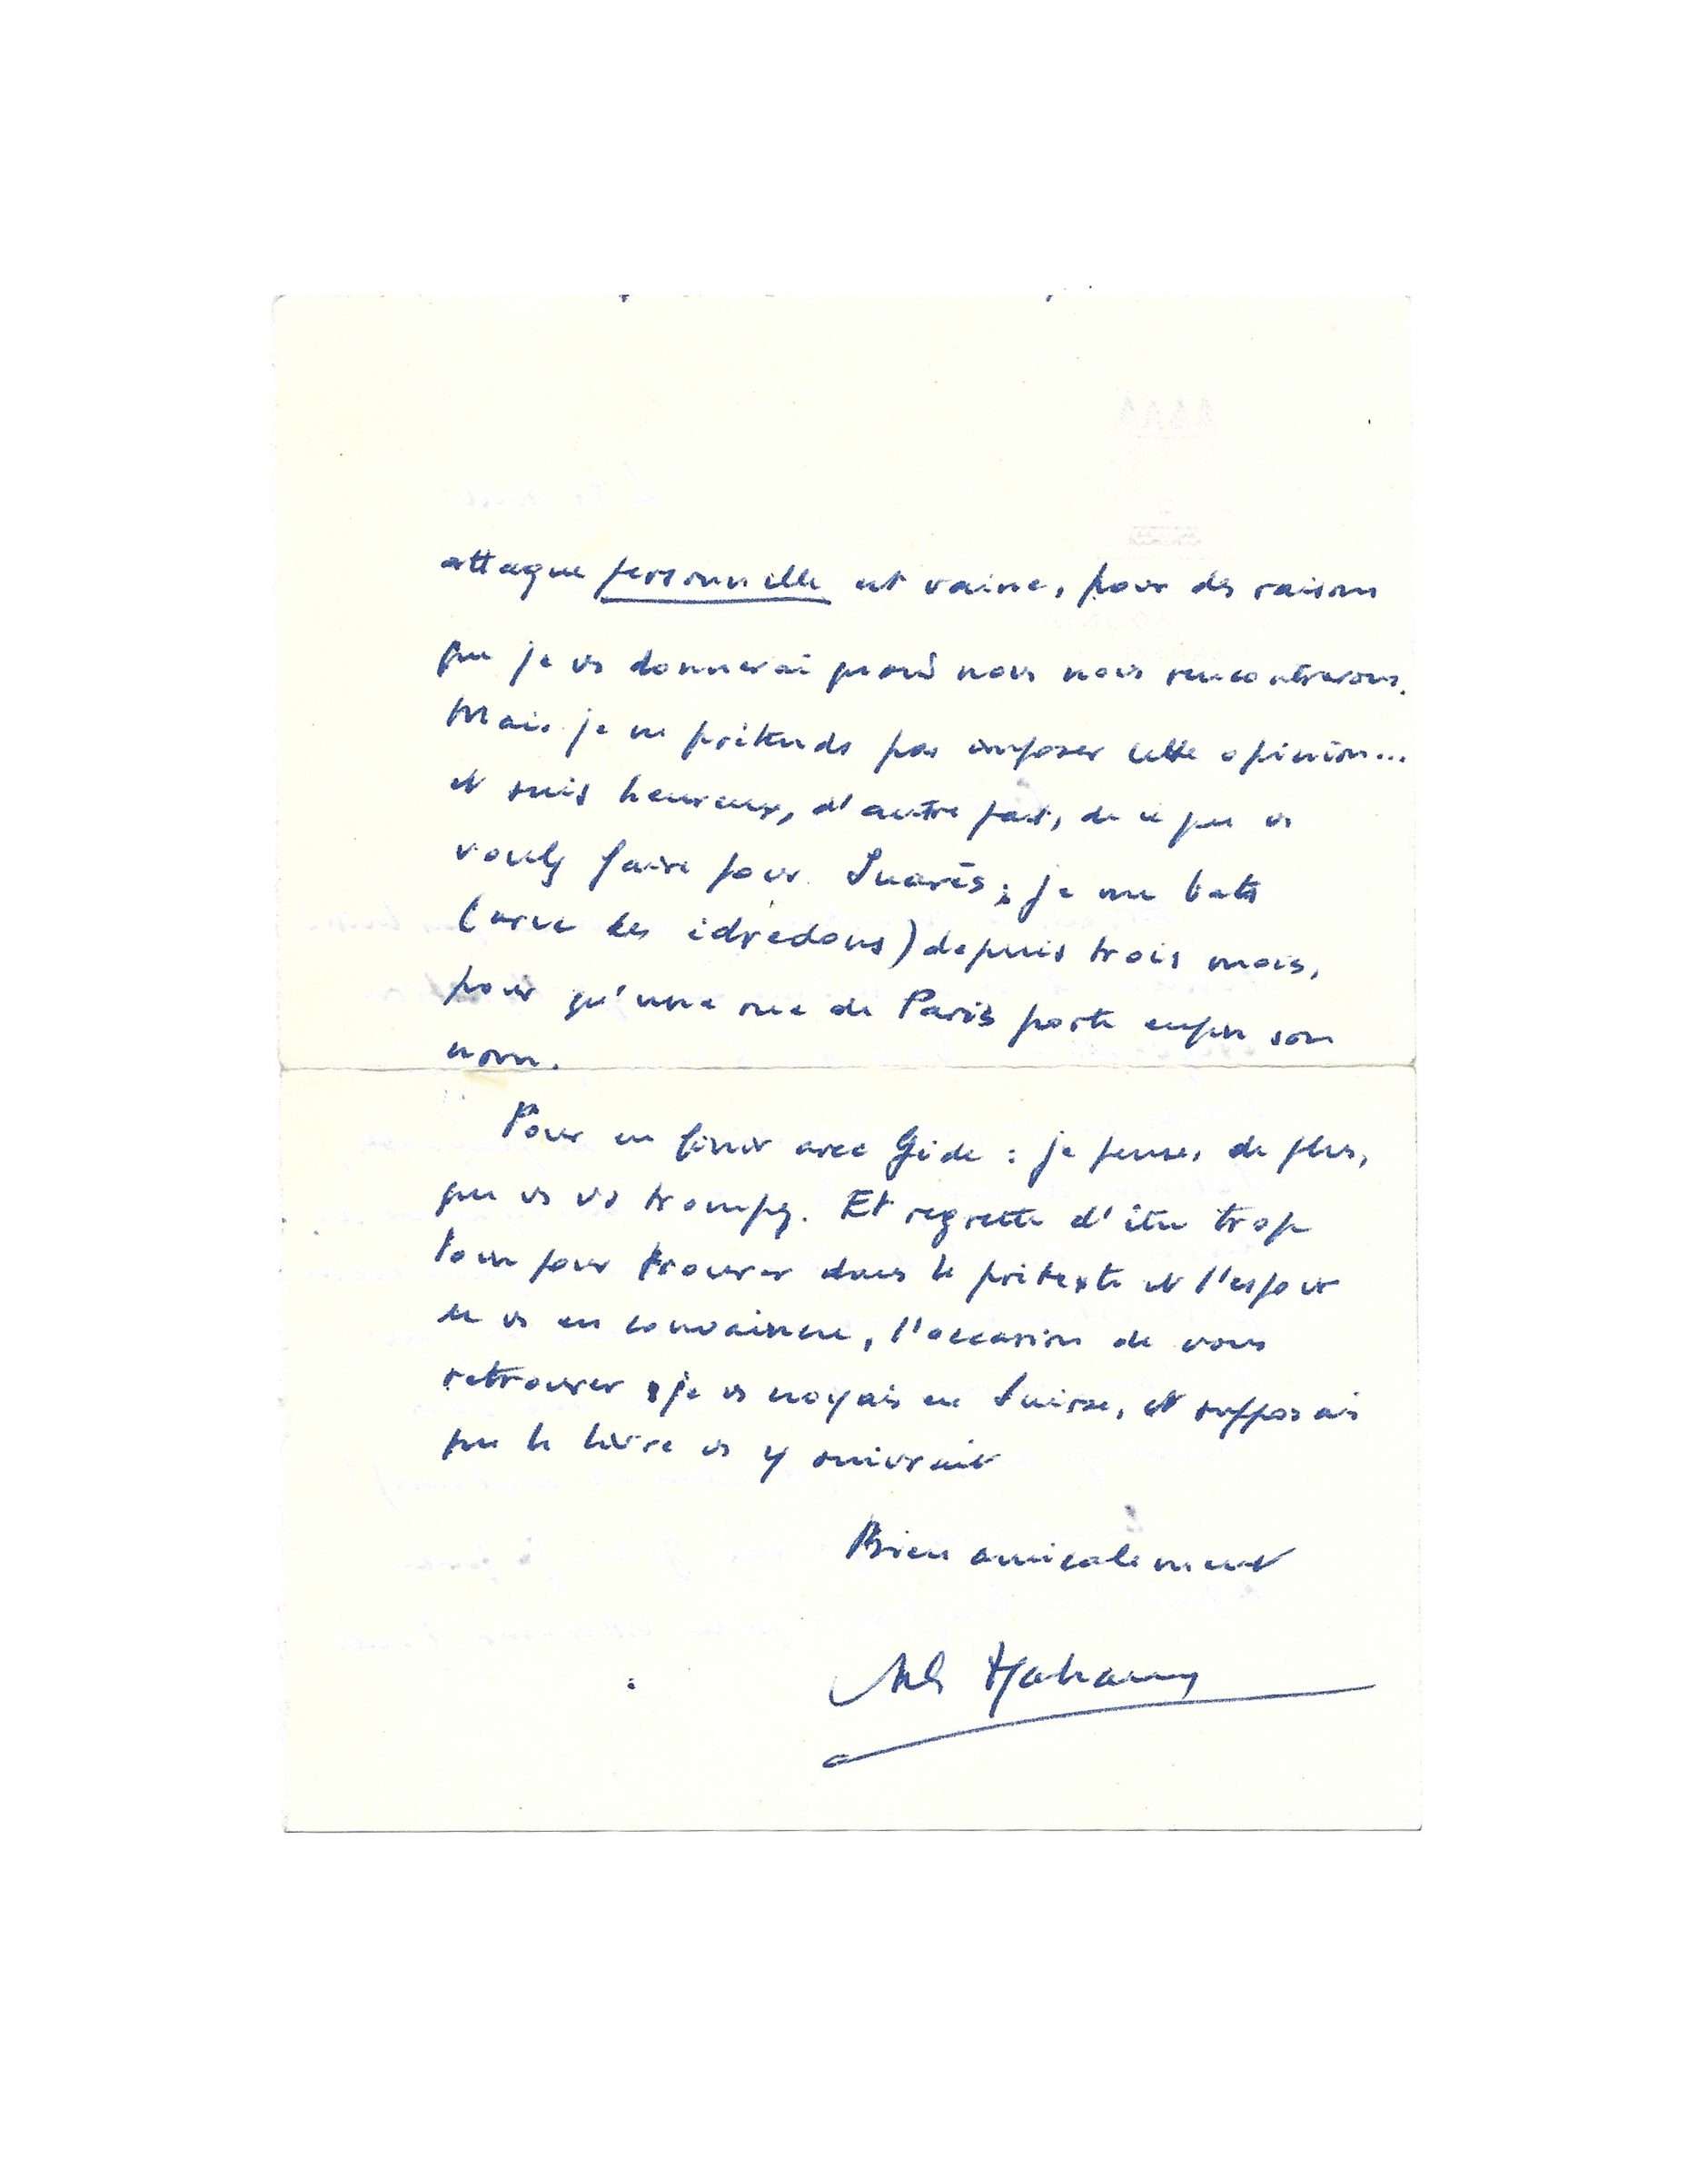 attaque personnelle est vaine, pour des raisons
que je vs donnerai quand nous nous rencontrerons.
Mais je ne prétends pas imposer cette opinion...
et suis heureux, d'autre part, de ce que vs
voulez faire pour Suarès ; je me bats
(avec des édredons) depuis trois mois,
pour qu'une rue de Paris porte enfin son
nom.
Pour en finir avec Gide : je pense, de plus,
que vs vs trompez. Et regrette d'être trop
loin pour trouver dans le prétexte et l'espoir
de vs en convaincre, l'occasion de vous
retrouver ; je vs croyais en Suisse, et supposais
que le livre vs y suivrait
Bien amicalement